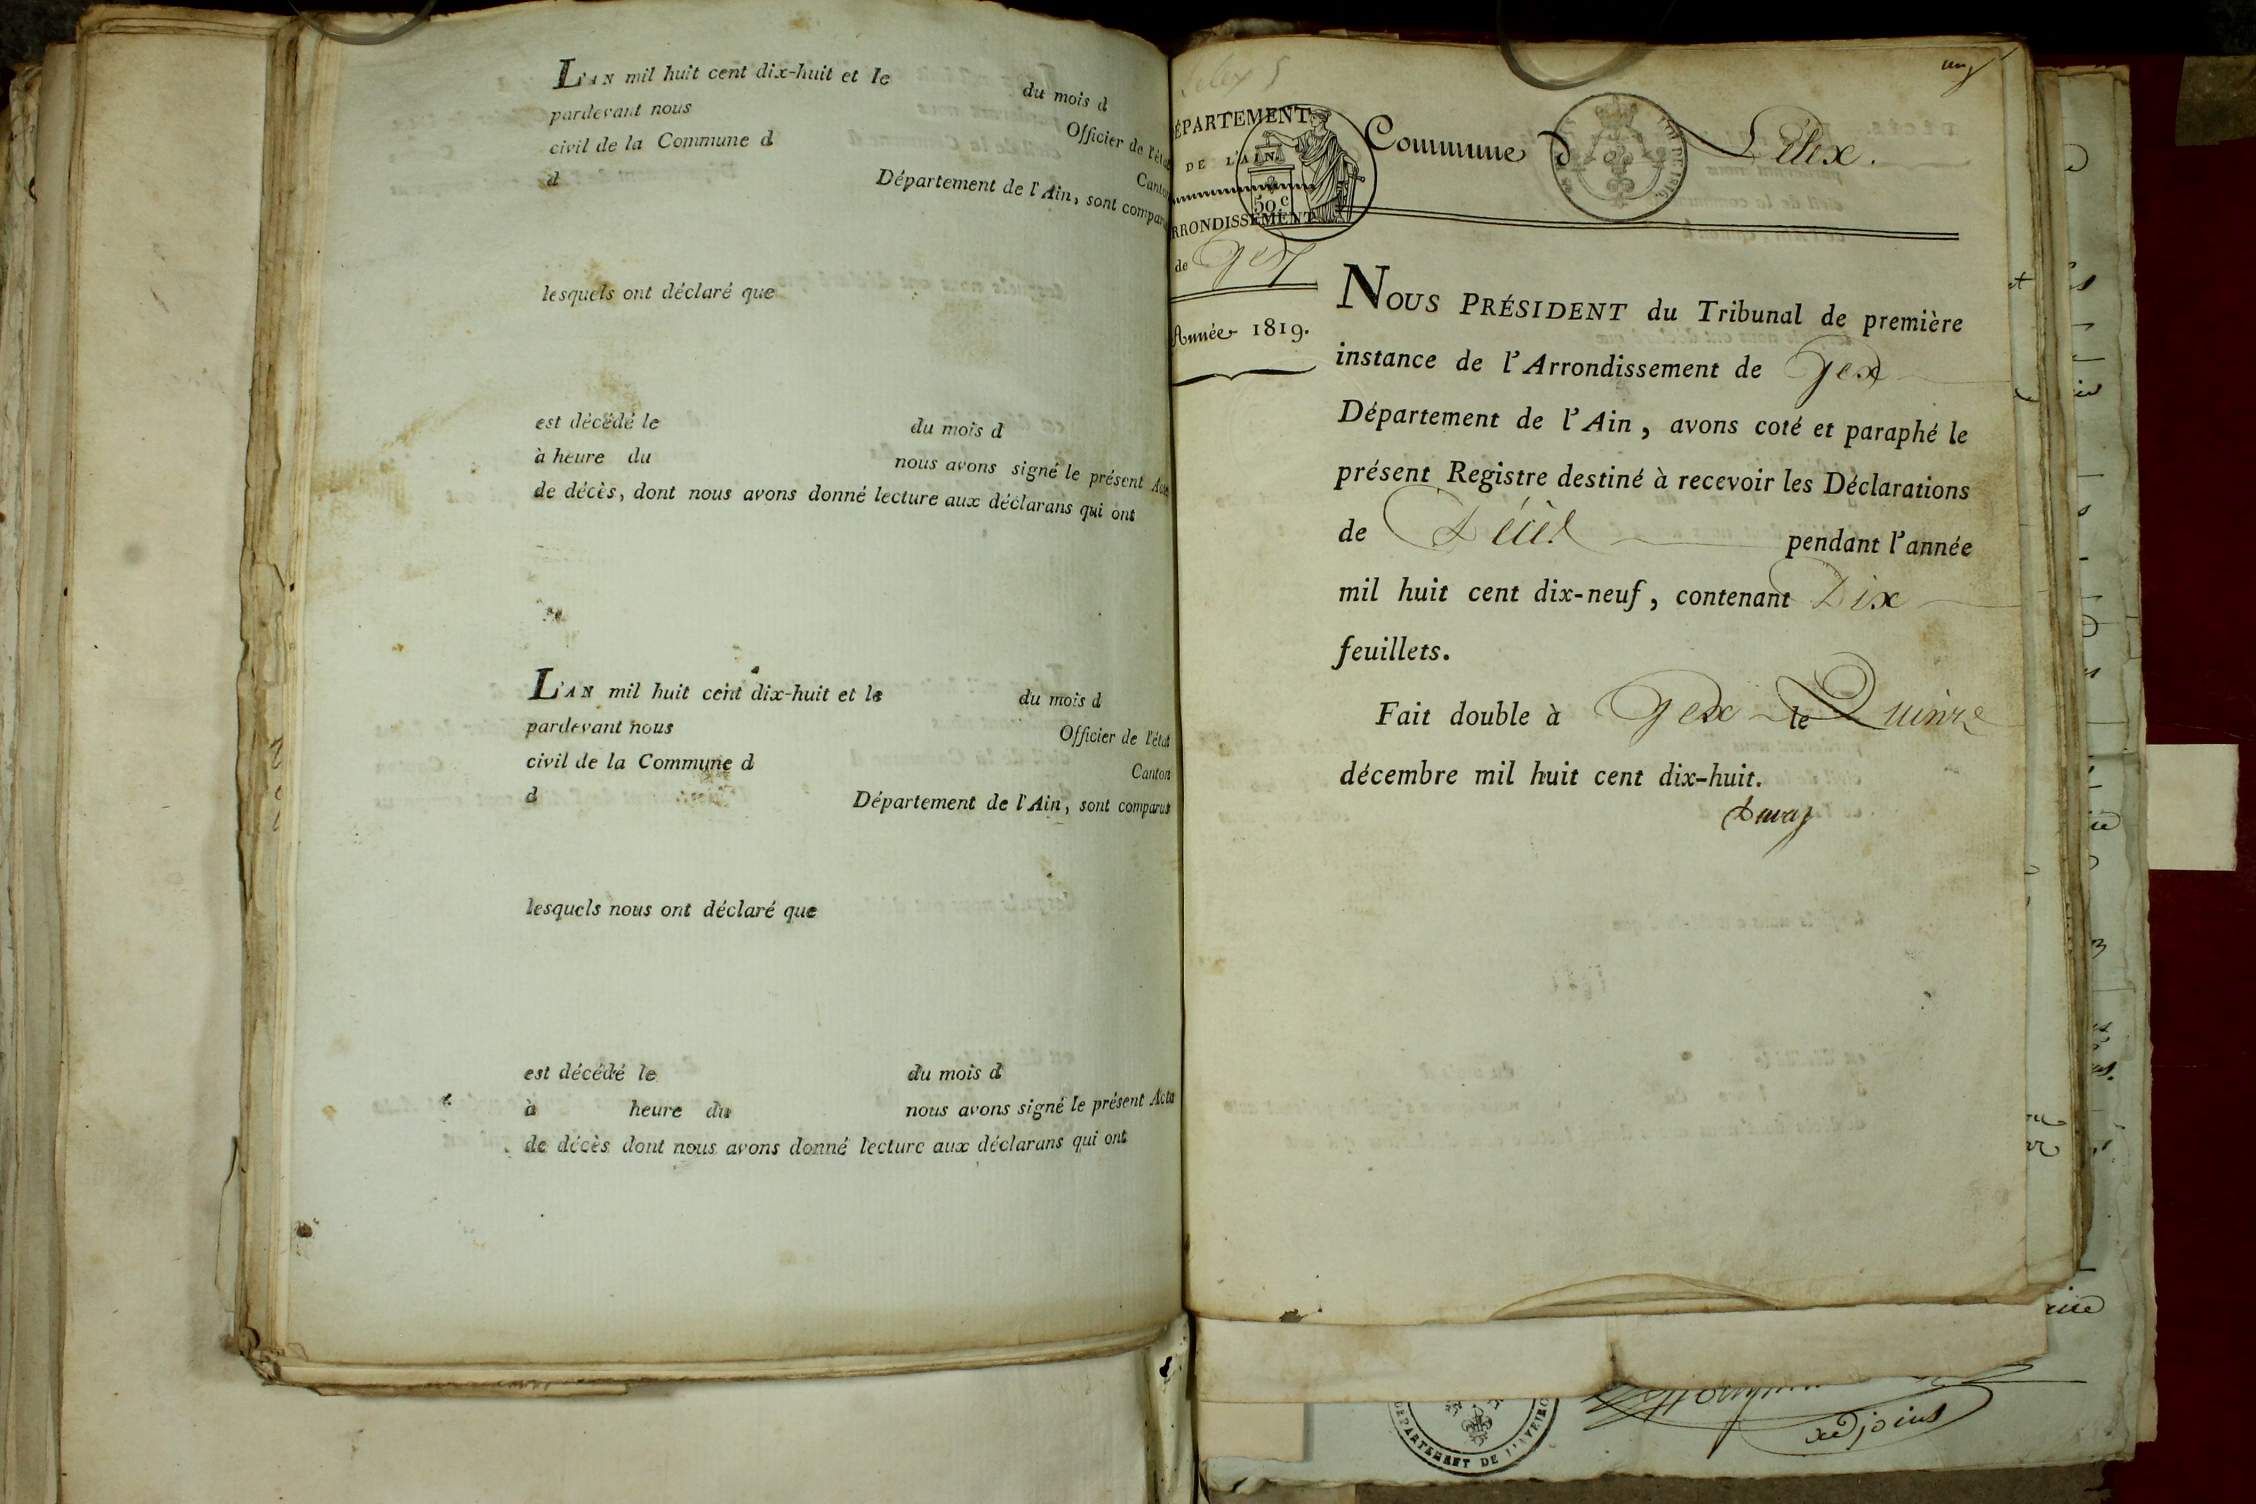 L'AN mil huit cent dix-huit et le du mois d
pardevant nous Officier de l'état
civil de la Commune d Canton
d Département de l'Ain, sont comparu
lesquels ont déclaré que
est décédé le du mois d
à heure du nous avons signé le présent Acte
de décès, dont nous avons donné lecture aux déclarans qui ont
L'AN mil huit cent dix-huit et le du mois d
pardevant nous Officier de l'état
civil de la Commune d Canton
d Département de l'Ain, sont comparus
lesquels nous ont déclaré que
est décédé le du mois d
à heure du nous avons signé le présent Acte
de décès dont nous avons donné lecture aux déclarans qui ont
Lelex 5
ÉPARTEMENT
DE L'AIN
50 c
RRONDISSEMENT
de Gex
Année 1819.
Commune d Lélex.
NOUS PRÉSIDENT du Tribunal de première
instance de l'Arrondissement de Gex
Département de l'Ain, avons coté et paraphé le
présent Registre destiné à recevoir les Déclarations
de Décès pendant l'année
mil huit cent dix-neuf, contenant Dix
feuillets.
Fait double à Gex le Quinze
décembre mil huit cent dix-huit.
adjoint
DEPARTEMENT DE L'AVEIRO